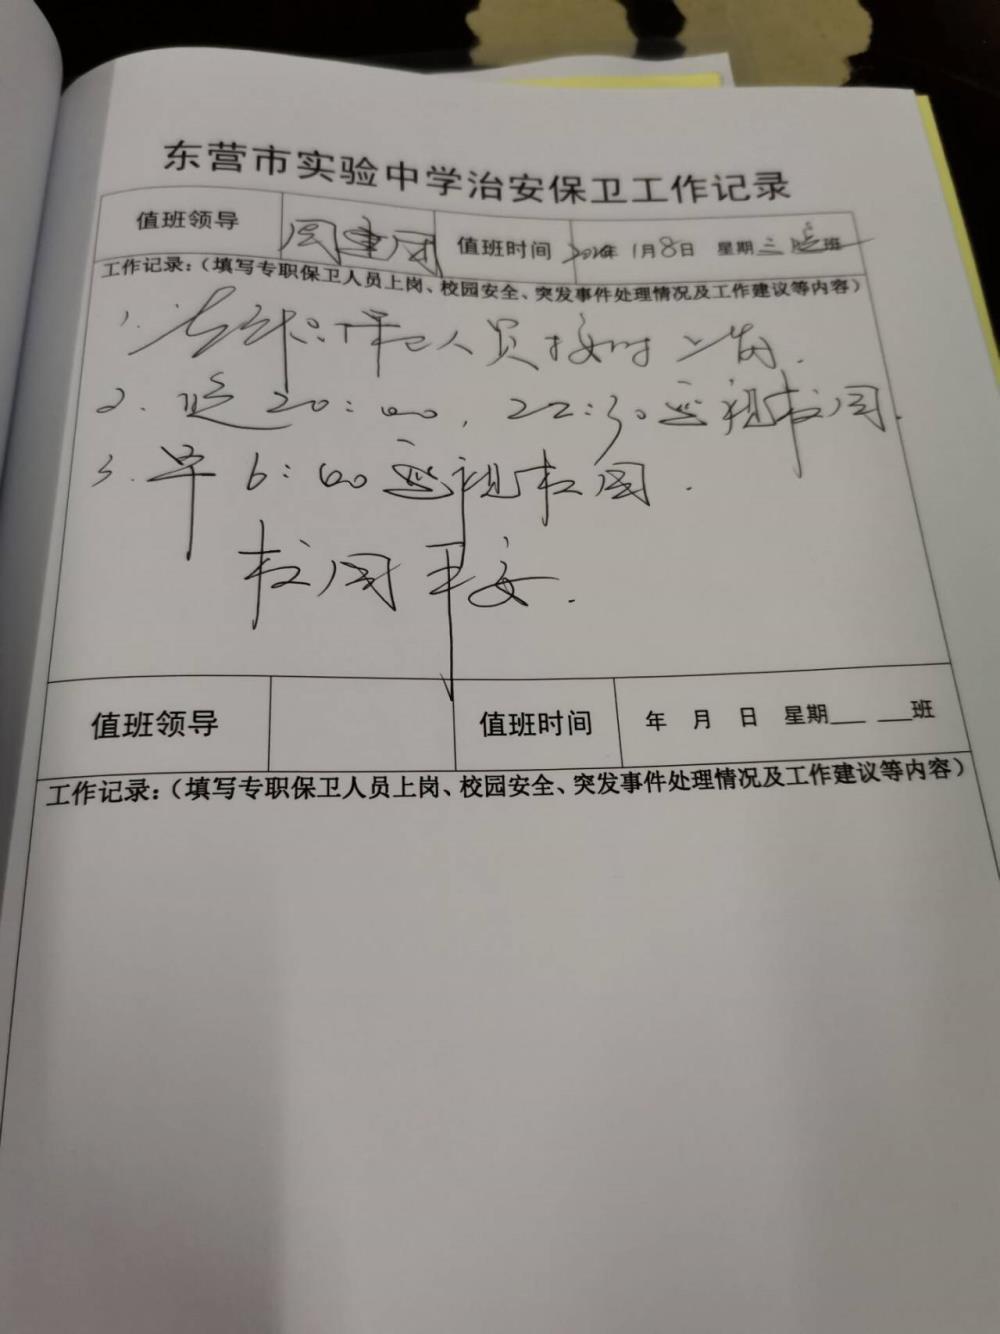 东营市实验中学治安保卫工作记录
值班领导 周建国 值班时间 年1月8日 星期三 晚班
工作记录：（填写专职保卫人员上岗、校园安全、突发事件处理情况及工作建议等内容）
1. 人员按时上岗.
2. 晚20:00, 22:30巡视校园.
3. 早6:00巡视校园.
校园平安.
值班领导 值班时间 年 月 日 星期___ ___班
工作记录：（填写专职保卫人员上岗、校园安全、突发事件处理情况及工作建议等内容）